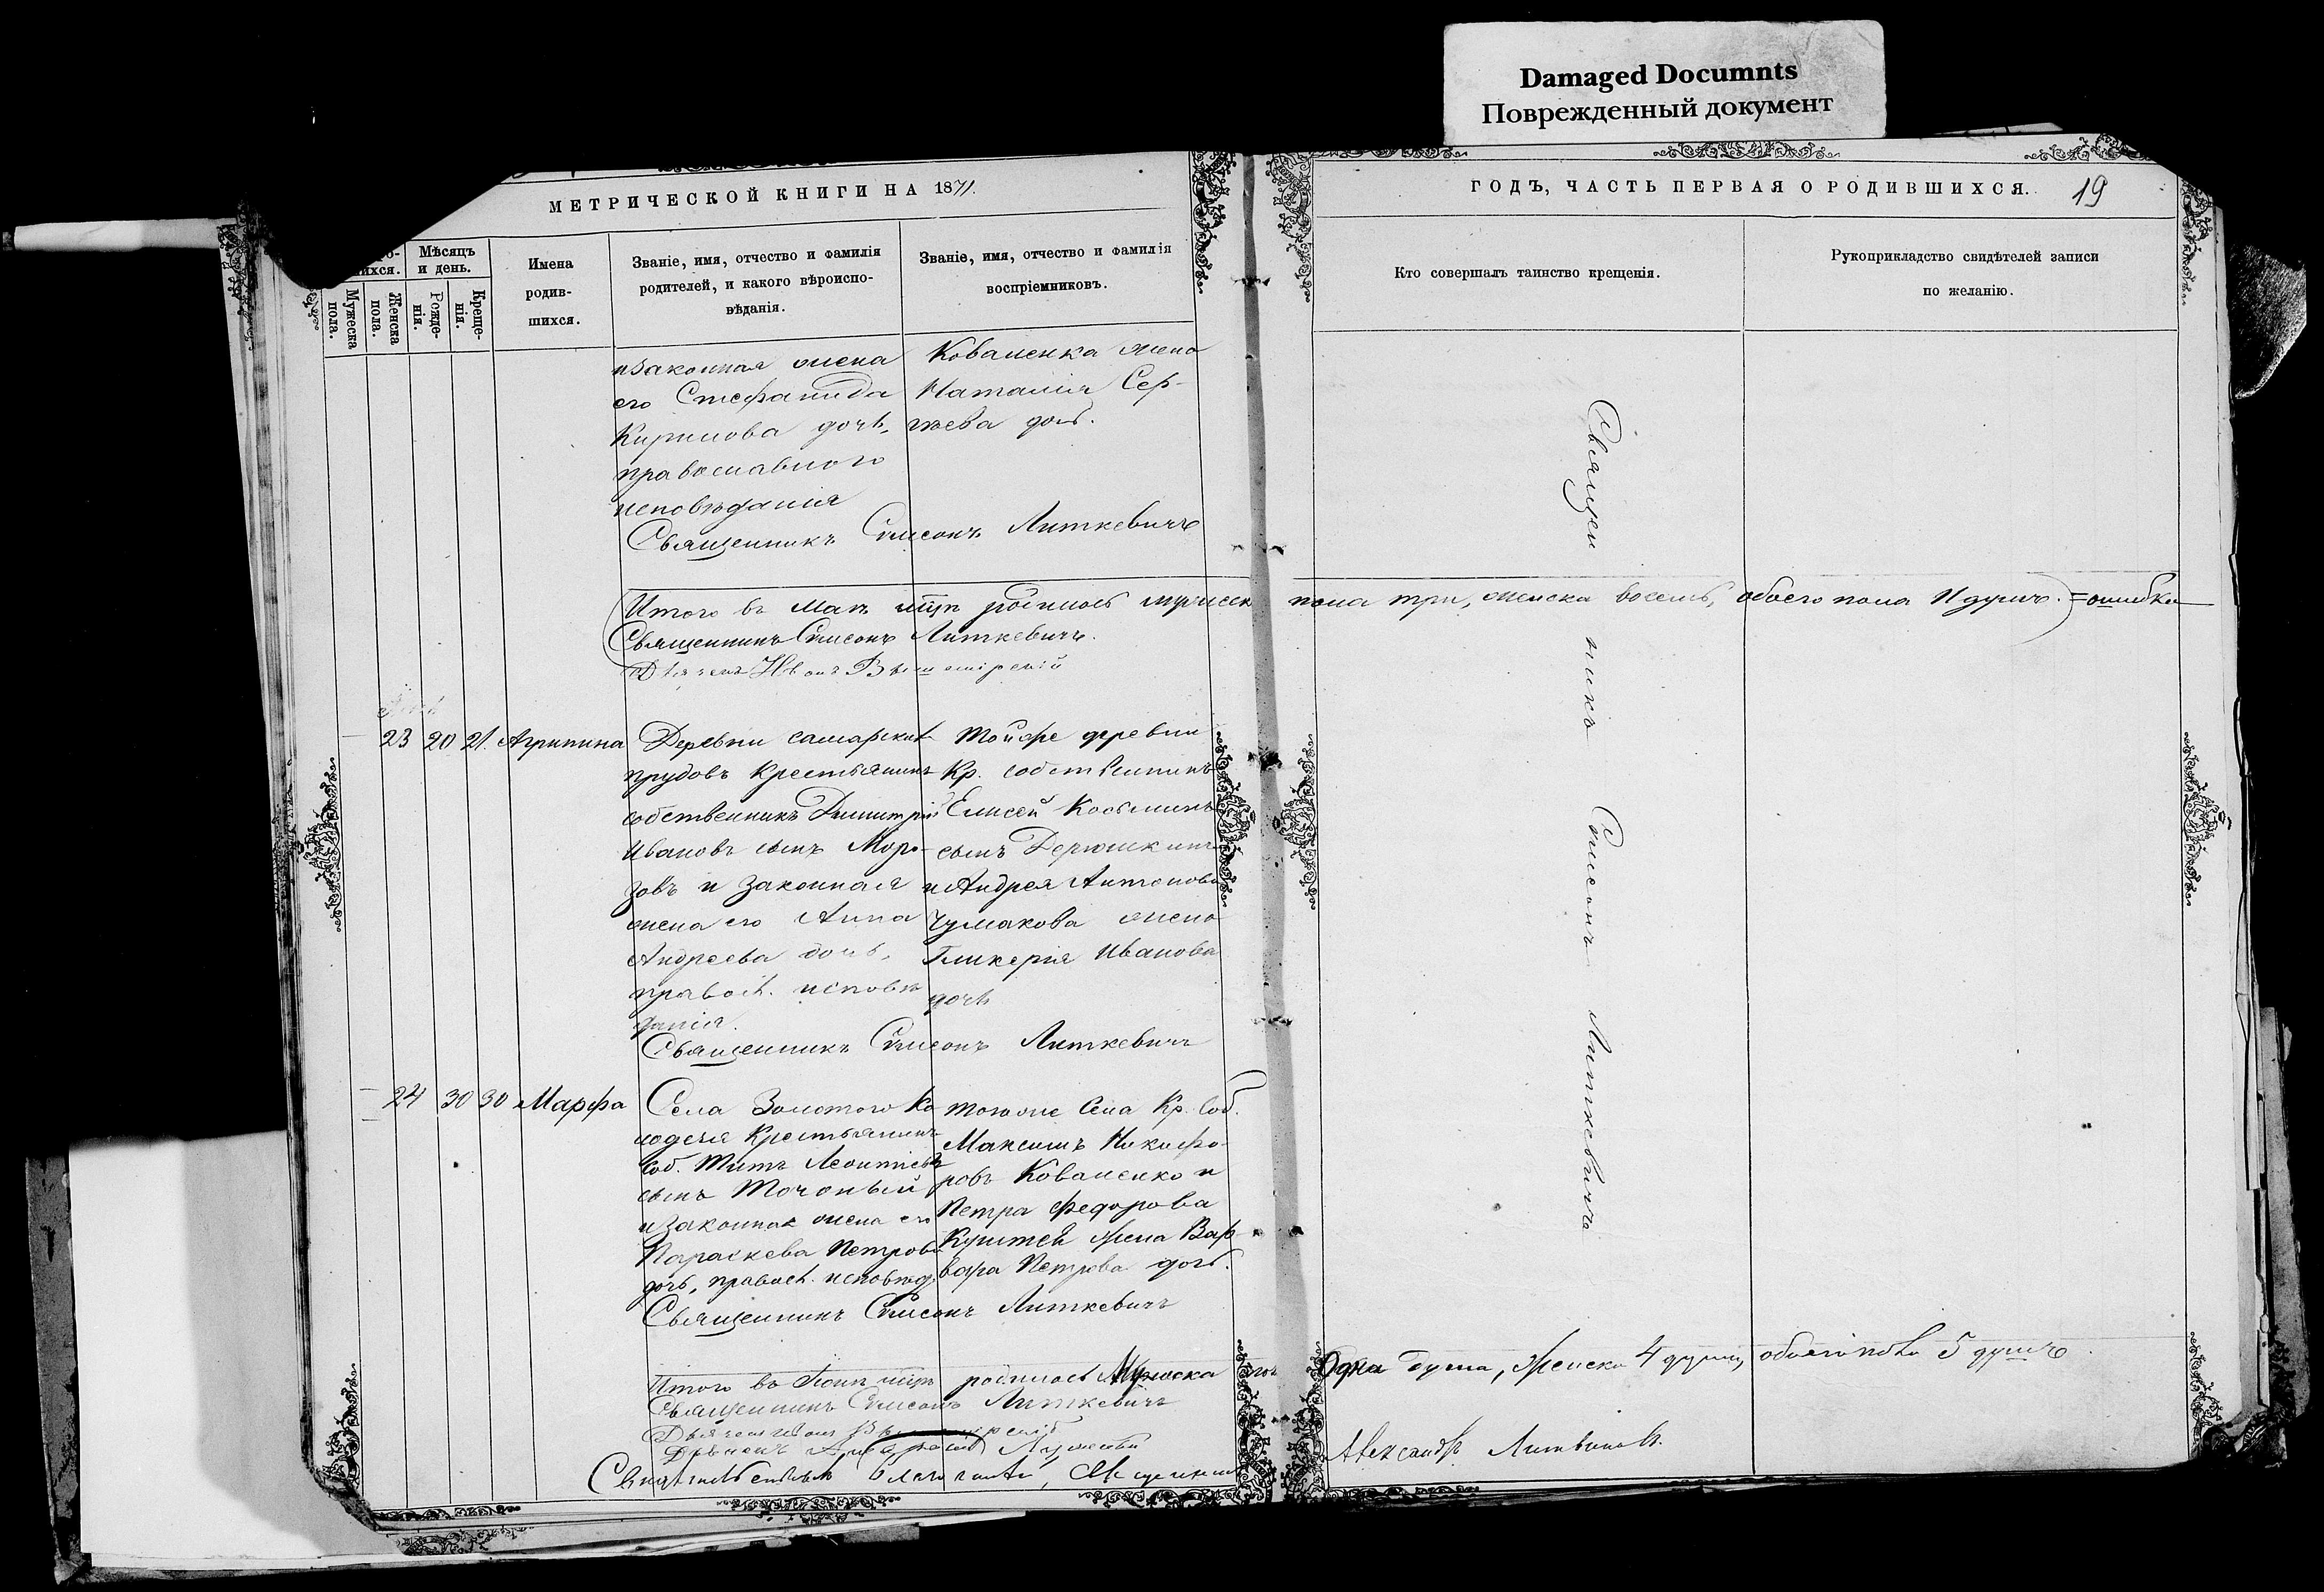 Damaged Documnts
Поврежденный документ
МЕТРИЧЕСКОЙ КНИГИ НА 1871.
ГОДЪ, ЧАСТЬ ПЕРВАЯ О РОДИВШИХСЯ. 19
Мѣсяцъ
и день.
Мужеска
пола.
Женска
пола.
Рожде-
нія.
Креще-
нія.
Имена
родив-
шихся.
Званіе, имя, отчество и фамилія
родителей, и какого вѣроиспо-
вѣданія.
Званіе, имя, отчество и фамилія
воспріемниковъ.
Кто совершалъ таинство крещенія.
Рукоприкладство свидѣтелей записи
по желанію.
и законная жена
его Стефанида
Кирилова дочь,
православного
исповѣданія
Коваленка жена
Наталія Сер-
гѣева дочь.
Священникъ Симеонъ Литкевичъ
Итого въ маѣ мцѣ родилось мужеск пола три, женска восемь, обоего пола 11 душъ. = ошибка
Священникъ Симеонъ Литкевичъ.
Дьячекъ Иванъ
23 20 21. Агрипина
Деревни самарскихъ
прудовъ Крестьянинъ
собственникъ Димитрій
Ивановъ сынъ Моро-
зовъ и законная
жена его Анна
Андреева дочь,
правосл. исповѣ
данія.
Тойже деревни
Кр. собственникъ
Елисей Косьминъ
сынъ Дерюшкинъ
и Андрея Антонова
Чумакова жена
Гликерія Иванова
дочь
Священникъ Симеонъ Литкевичъ
24 30 30 Марфа
Села Золотого Ко
лодезя Крестьянинъ
соб. Титъ Леонтіевъ
сынъ Точоный
и законная жена его
Параскева Петрова
дочь, правосл. исповѣд.
Тогоже Села Кр. Соб.
Максимъ Никифо-
ровъ Коваленко и
Петра Федорова
жена Вар-
вара Петрова дочь.
Священникъ Симеонъ Литкевичъ
Итого въ Іюнѣ мцѣ родилось Мужеска пол Одна душа, Женска 4 души, обоего пола 5 душъ.
Священникъ Симеонъ Литкевичъ
Александръ Литвиновъ.
Священ
никъ
Симеонъ
Литкевичъ